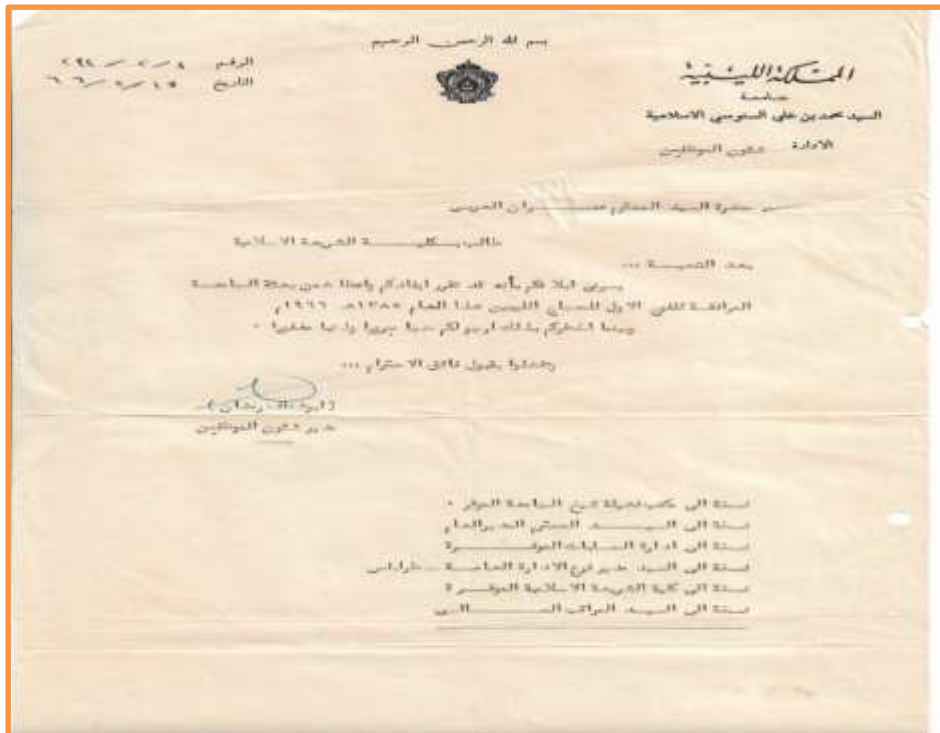 بسم الله الرحمن الرحيم
المملكة الليبية
جامعة
السيد محمد بن علي السنوسي الاسلامية
الادارة شئون الموظفين
الرقم
التاريخ
حضرة السيد المحترم العربي
طالب بكلية الشريعة الاسلامية
بعد التحية ...
يسرني ابلاغكم بأنه قد تقرر ايفادكم واعظا ضمن بعثة الجامعة
المرافقة للفوج الاول للحجاج الليبيين هذا العام ١٣٨٥ه ١٩٦٦م
وبينما اخطركم بذلك ارجو لكم حجا مبرورا وذنبا مغفورا .
وتفضلوا بقبول فائق الاحترام ...
مدير شئون الموظفين
نسخة الى مكتب فضيلة شيخ الجامعة الموقر .
نسخة الى السيد المحترم المدير العام
نسخة الى ادارة الحسابات الموقرة
نسخة الى السيد مدير فرع الادارة العامة - طرابلس
نسخة الى كلية الشريعة الاسلامية الموقرة
نسخة الى السيد المراقب المالي